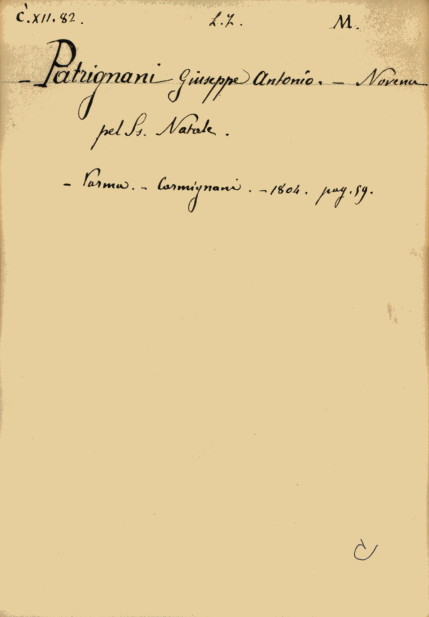 C̀.XII.82. L.I. M.
– Patrignani Giuseppe Antonio. – Novena
pel Ss. Natale.
– Parma. – Carmignani. – 1804. pag. 59.
C̀